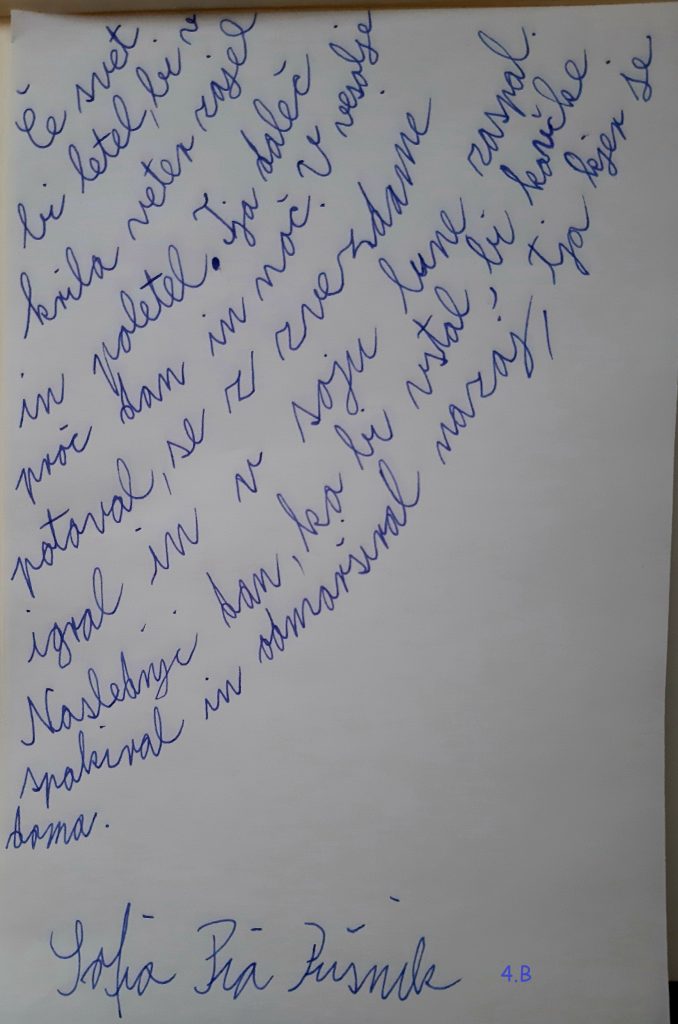 Če svet
bi letel, bi v
krila veter zajel
in poletel. Tja daleč
proč dan in noč. V vesolje
potoval, se z zvezdame
igral in v soju lune zaspal.
Naslednji dan, ko bi vstal, bi kovčke
spakiral in odmarširal nazaj, tja kjer se
doma.
Sofia Pia Pušnik 4.B